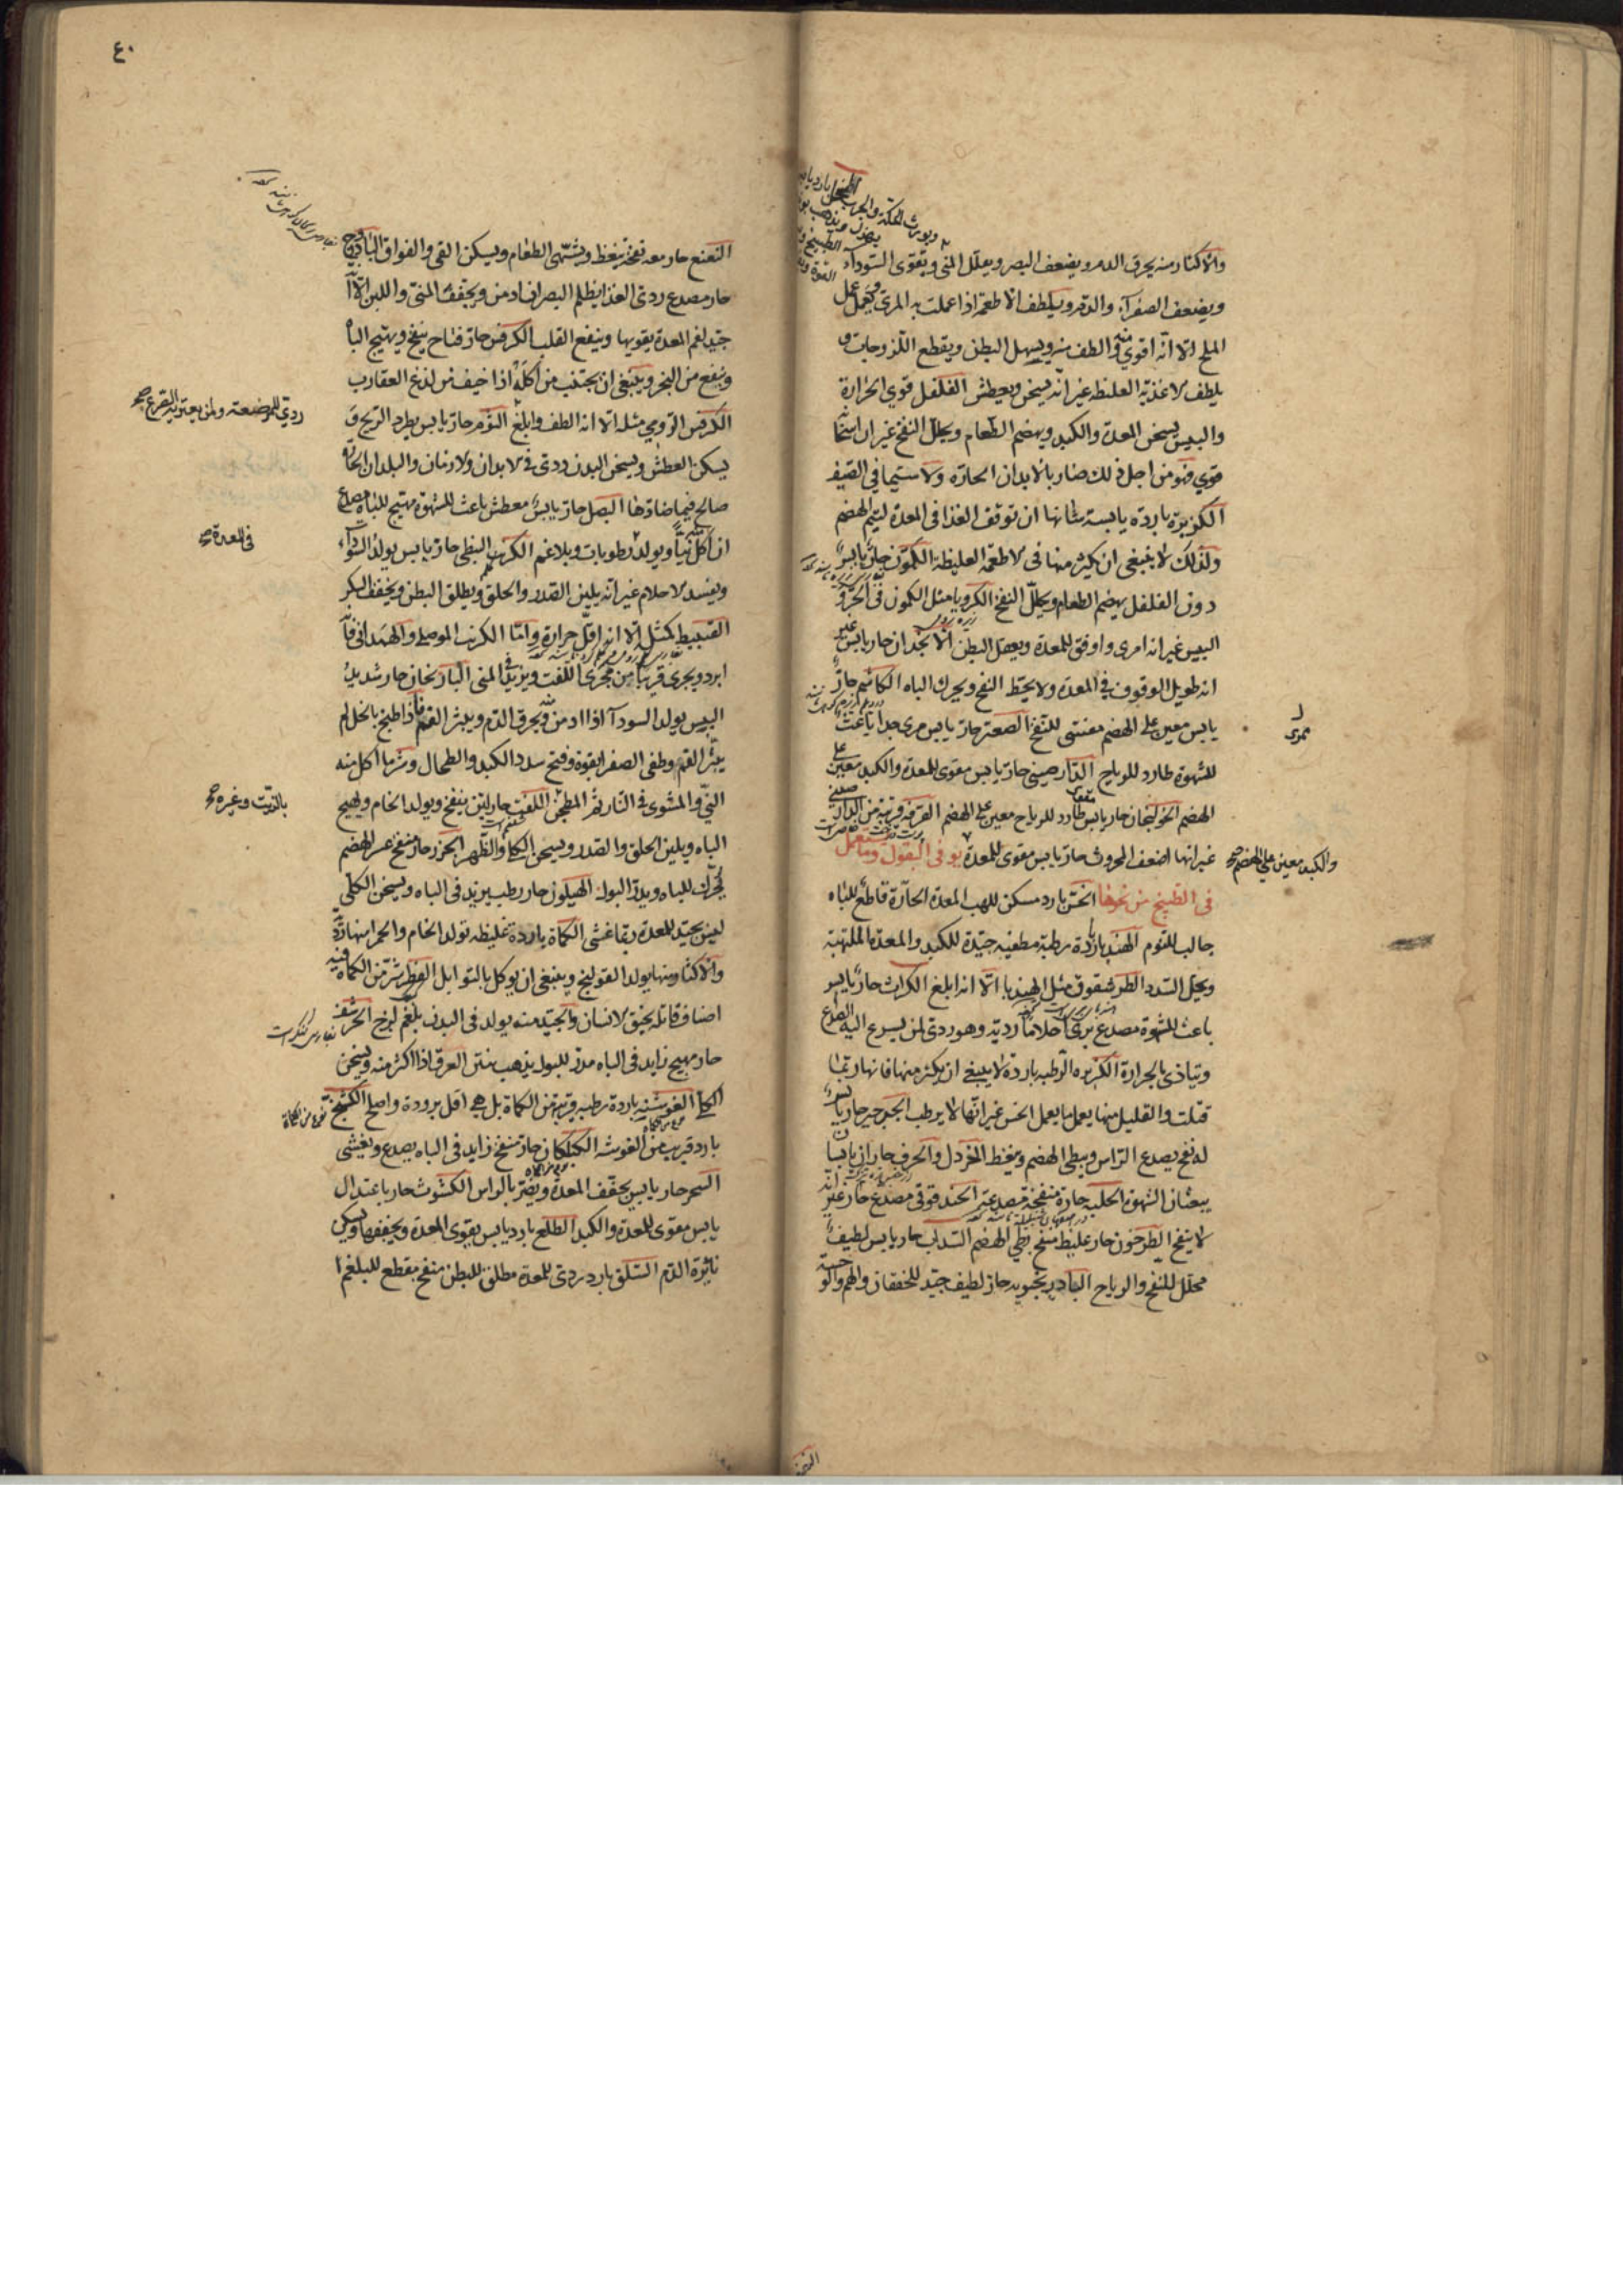 والاكثار منه يحرق الدم ويضعف البصر ويقلل المنى ويقوى السوداء
ويضعف الصفراء والدم ويلطف الاطعمة اذا عملت به المرى يعمل عمل
الملح الا انه اقوى منه والطف منه ويسهل البطن ويقطع اللزوجات و
يلطف الاغذية الغليظة غير انه يسخن ويعطش الفلفل قوى الحرارة
واليبس يسخن المعدة والكبد ويهضم الطعام ويحلل النفخ غير ان اسخانه
قوى فهو من اجل ذلك ضار بالابدان الحارة ولا سيما فى الصيف
الكزبرة باردة يابسة شانها ان توقف الغذا فى المعدة ليتم الهضم
ولذلك لا ينبغى ان يكثر منها فى الاطعمة الغليظة الكمون حار يابس
دون الفلفل يهضم الطعام ويحلل النفخ الكرويا مثل الكمون فى الحر و
اليبس غير انه امرى واوفق للمعدة ويعقل البطن الانجدان حار يابس غير
انه طويل الوقوف فى المعدة ولا يحط النفخ ويحرك الباه الكاشم حار
يابس معين على الهضم مفشى للنفخ الصعتر حار يابس مرى جدا باعث
للشهوة طارد للرياح الدارصينى حار يابس مقوى للمعدة والكبد معين على
الهضم الخولنجان حار يابس طارد للرياح معين على الهضم القرفة قريبة من الدار صينى
غير انها اضعف المحروث حار يابس مقوى للمعدة يو فى البقول وما يستعمل
فى الطبيخ من نحوها الخس بارد مسكن للهب المعدة الحارة قاطع للباه
جالب للنوم الهندبا باردة رطبة مطفيه جيدة للكبد والمعدة الملتهبة
ويحل السدد الطرشقوق مثل الهندبا الا انه ابلغ الكراث حار يابس
باعث للشهوة مصدع يرى احلاما ردية وهو ردى لمن يسرع اليه الصداع
ويتاذى بالحرارة الكزبره الرطبه باردة لا ينبغى ان يكثر منها فانها ربما
قتلت والقليل منها يعمل ما يعمل الخس غير انها لا يرطب الجرجير حار يابس
له نفخ يصدع الراس ويبطى الهضم ويغظ الخردل والحرف حاران يابسان
يبعثان الشهوة الحلبه حارة منفخة مصدعة الحندقوقى مصدع حار غير انه
لا ينفخ الطرخون حار غليظ منفخ بطى الهضم السداب حار يابس لطيف
محلل للنفخ والرياح البادرنجبويه حار لطيف جيد للخفقان والهم والوحشة
والكبد معين على الهضم صح
٤٠
النعنع حار معه نفخة يغظ ويشهى الطعام ويسكن القى والفواق الباذروج
حار مصدع ردى الغذا يظلم البصر ان ادمن ويجفف المنى واللبن الا انه
جيد لفم المعدة يقويها وينفع القلب الكرفس حار فتاح ينفخ ويهيج الباه
وينفع من البخر وينبغى ان يجتنب من اكله اذا خيف من لدغ العقارب
الكرفس الرومى مثله الا انه الطف وابلغ الثوم حار يابس يطرد الريح و
يسكن العطش ويسخن البدن ردى فى الابدان والازمان والبلدان الحارة
صالح فيما ضادها البصل حار يابس معطش باعث للشهوة مهيج للباه مصدع
ان اكل نيا ويولد رطوبات وبلاغم الكرنب النبطى حار يابس يولد السوداء
ويفسد الاحلام غير انه يلين الصدر والحلق ويطلق البطن ويخفف السكر
القنبيط كمثله الا انه اقل حرارة واما الكرنب الموصلى والهمدانى فانه
ابرد ويجرى قريبا من مجرى اللفت ويزيد فى المنى الباذنجان حار شديد
اليبس يولد السودآ اذا ادمن ويحرق الدم ويبثر الفم فاذا طبخ بالخل لم
يبثر الفم وطفى الصفرا بقوة وفتح سدد الكبد والطحال وشر ما اكل منه
النى والمشوى فى النار ثم المطجن اللفت حار لين ينفخ ويولد الخام ويهيج
الباه ويلين الحلق والصدر ويسخن الكلا والظهر الجزر حار منفخ عسر الهضم
يحرك للباه ويدر البول الهيلون حار رطب يزيد فى الباه ويسخن الكلى
ليس بجيد للمعدة ربما غشى الكماة باردة غليظه تولد الخام والحمر منها ردية
والاكثار منها يولد القولنج وينبغى ان يوكل بالتوابل الفطر شر من الكماة فيه
اصناف قاتلة يخنق الانسان والجيد منه يولد فى البدن بلغم لزج الحرشف
حار مهيج زايد فى الباه مدر للبول يذهب بنتن العرق اذا اكثر منه ويسخن
الكلى الغوشنه باردة رطبه قريبة من الكماة بل هى اقل برودة واصلح الكشنج
بارد قريب من الغوشنه الكنكان حار منفخ زايد فى الباه يصدع ويغشى
السمر حار يابس يجفف المعدة ويضر بالراس الكشوث حار باعتدال
يابس مقوى للمعدة والكبد الطلع بارد يابس يقوى المعدة ويجففها ويسكن
نائرة الدم السلق بارد ردى للمعدة مطلق للبطن منفخ مقطع للبلغم ا
ردى للمرضعة ولمن يعتريه الصرع صح
فى المعدة صح
بالزيت وغيره صح